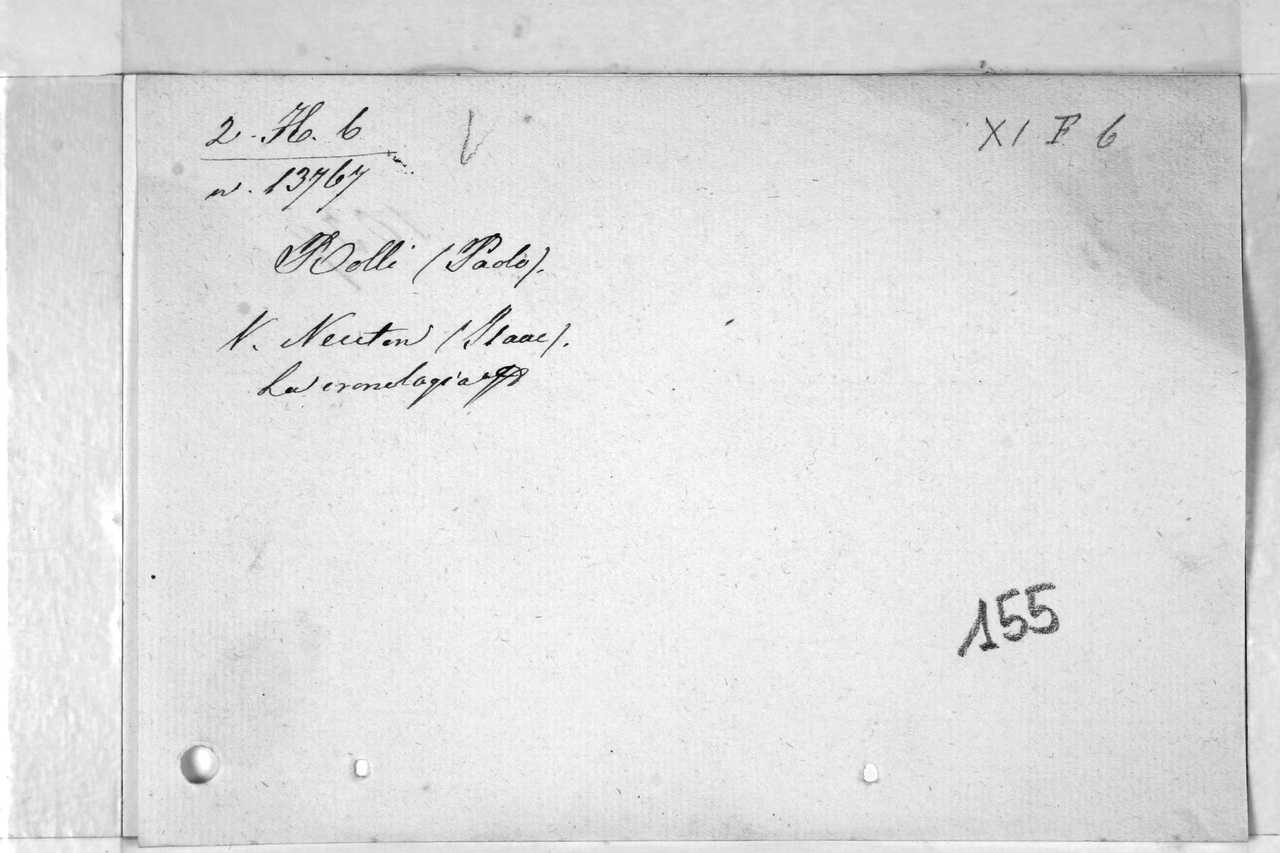 2. H. 6
XI F 6
n. 13767
Rolli (Paolo).
V. Neuton (Isaac).
La cronologia
155